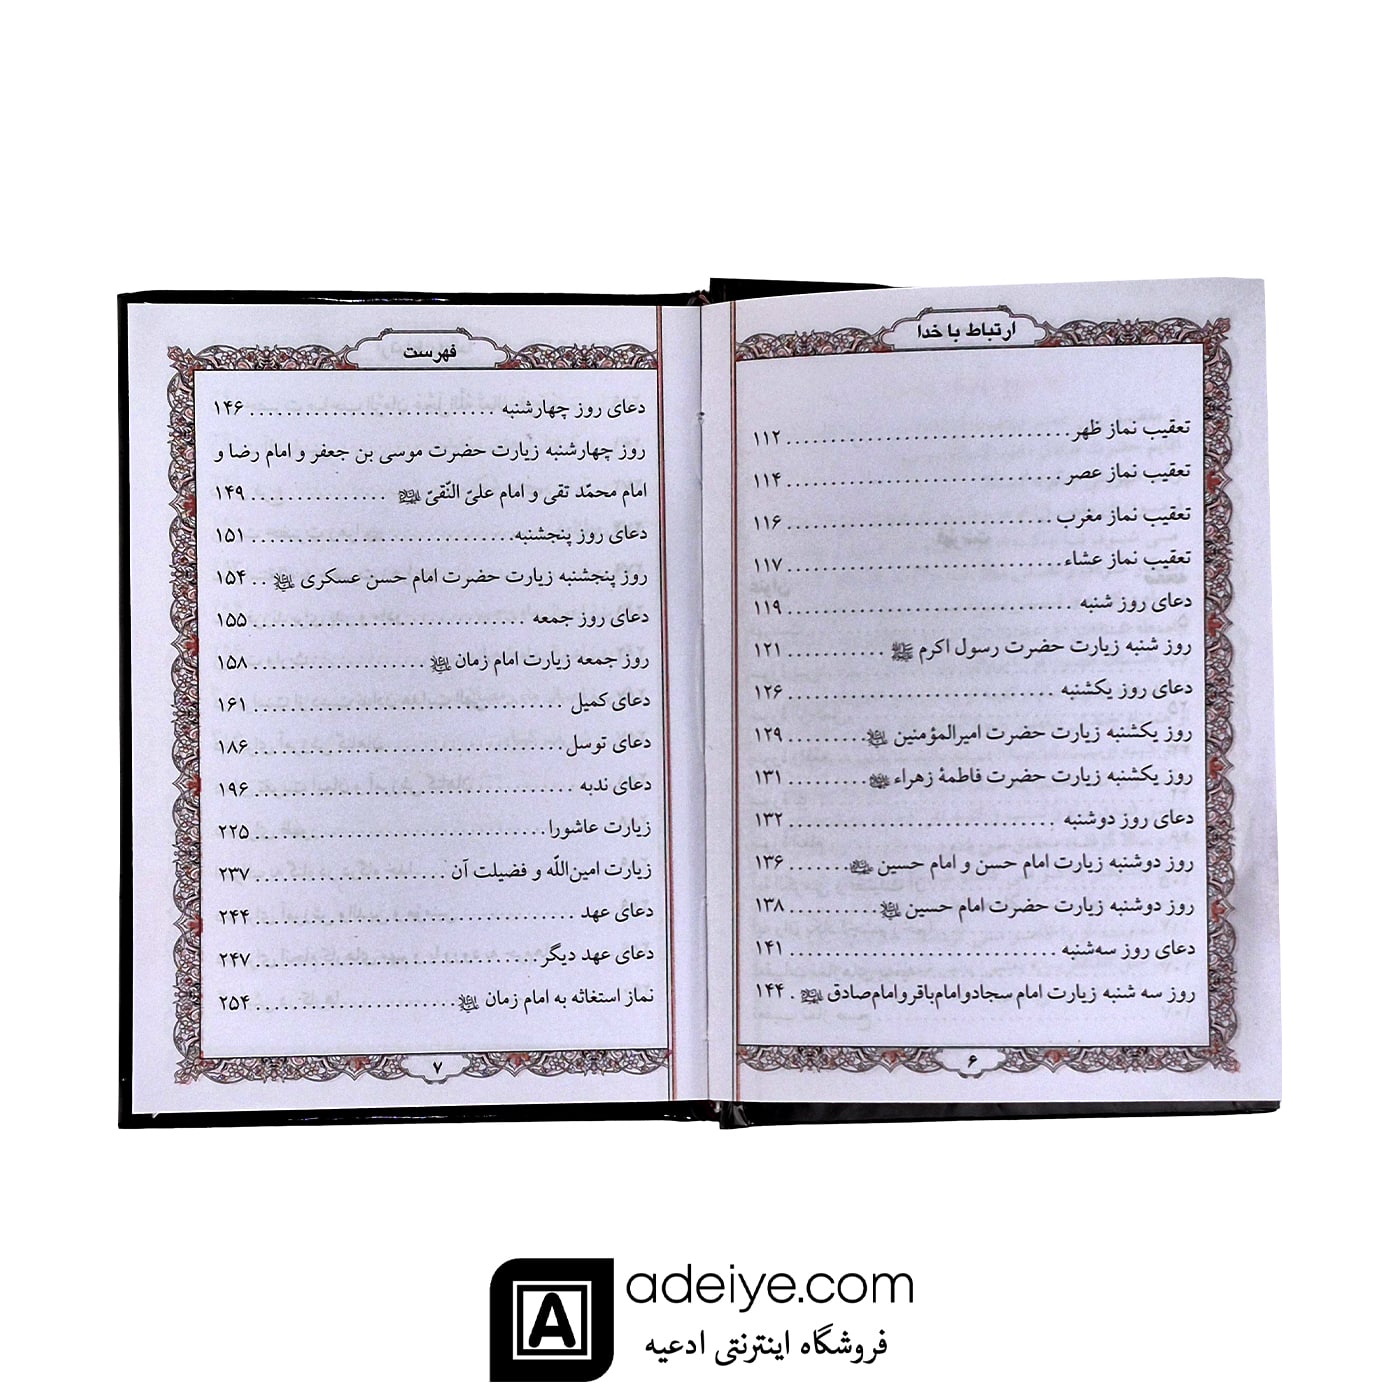 ارتباط با خدا
تعقیب نماز ظهر..............................۱۱۲
تعقیب نماز عصر..............................۱۱۴
تعقیب نماز مغرب ............................۱۱۶
تعقیب نماز عشاء.............................۱۱۷
دعای روز شنبه ..............................۱۱۹
روز شنبه زیارت حضرت رسول اکرم ﷺ ...........۱۲۱
دعای روز یکشنبه ............................۱۲۶
روز یکشنبه زیارت حضرت امیرالمؤمنین .........۱۲۹
روز یکشنبه زیارت حضرت فاطمهٔ زهراء .........۱۳۱
دعای روز دوشنبه ............................۱۳۲
روز دوشنبه زیارت امام حسن و امام حسین .......۱۳۶
روز دوشنبه زیارت حضرت امام حسین .........۱۳۸
دعای روز سه‌شنبه ...........................۱۴۱
روز سه شنبه زیارت امام سجاد و امام باقر و امام صادق . ۱۴۴
۶
فهرست
دعای روز چهارشنبه ..........................۱۴۶
روز چهارشنبه زیارت حضرت موسی بن جعفر و امام رضا و
امام محمّد تقی و امام علیّ النّقیّ ..............۱۴۹
دعای روز پنجشنبه............................۱۵۱
روز پنجشنبه زیارت حضرت امام حسن عسکری ..۱۵۴
دعای روز جمعه .............................۱۵۵
روز جمعه زیارت امام زمان ...................۱۵۸
دعای کمیل .................................۱۶۱
دعای توسل .................................۱۸۶
دعای ندبه ..................................۱۹۶
زیارت عاشورا...............................۲۲۵
زیارت امین‌اللّه و فضیلت آن ..................۲۳۷
دعای عهد ..................................۲۴۴
دعای عهد دیگر..............................۲۴۷
نماز استغاثه به امام زمان ....................۲۵۴
۷
adeiye.com
فروشگاه اینترنتی ادعیه
A